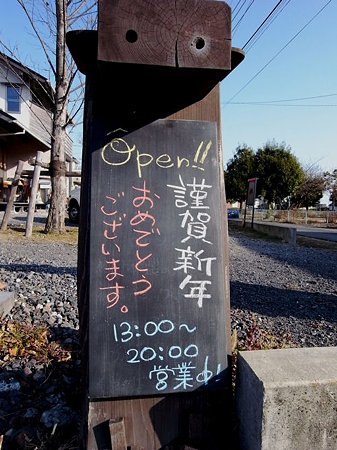 Open!!
謹賀新年
おめでとう
ございます。
13:00〜
20:00
営業中!